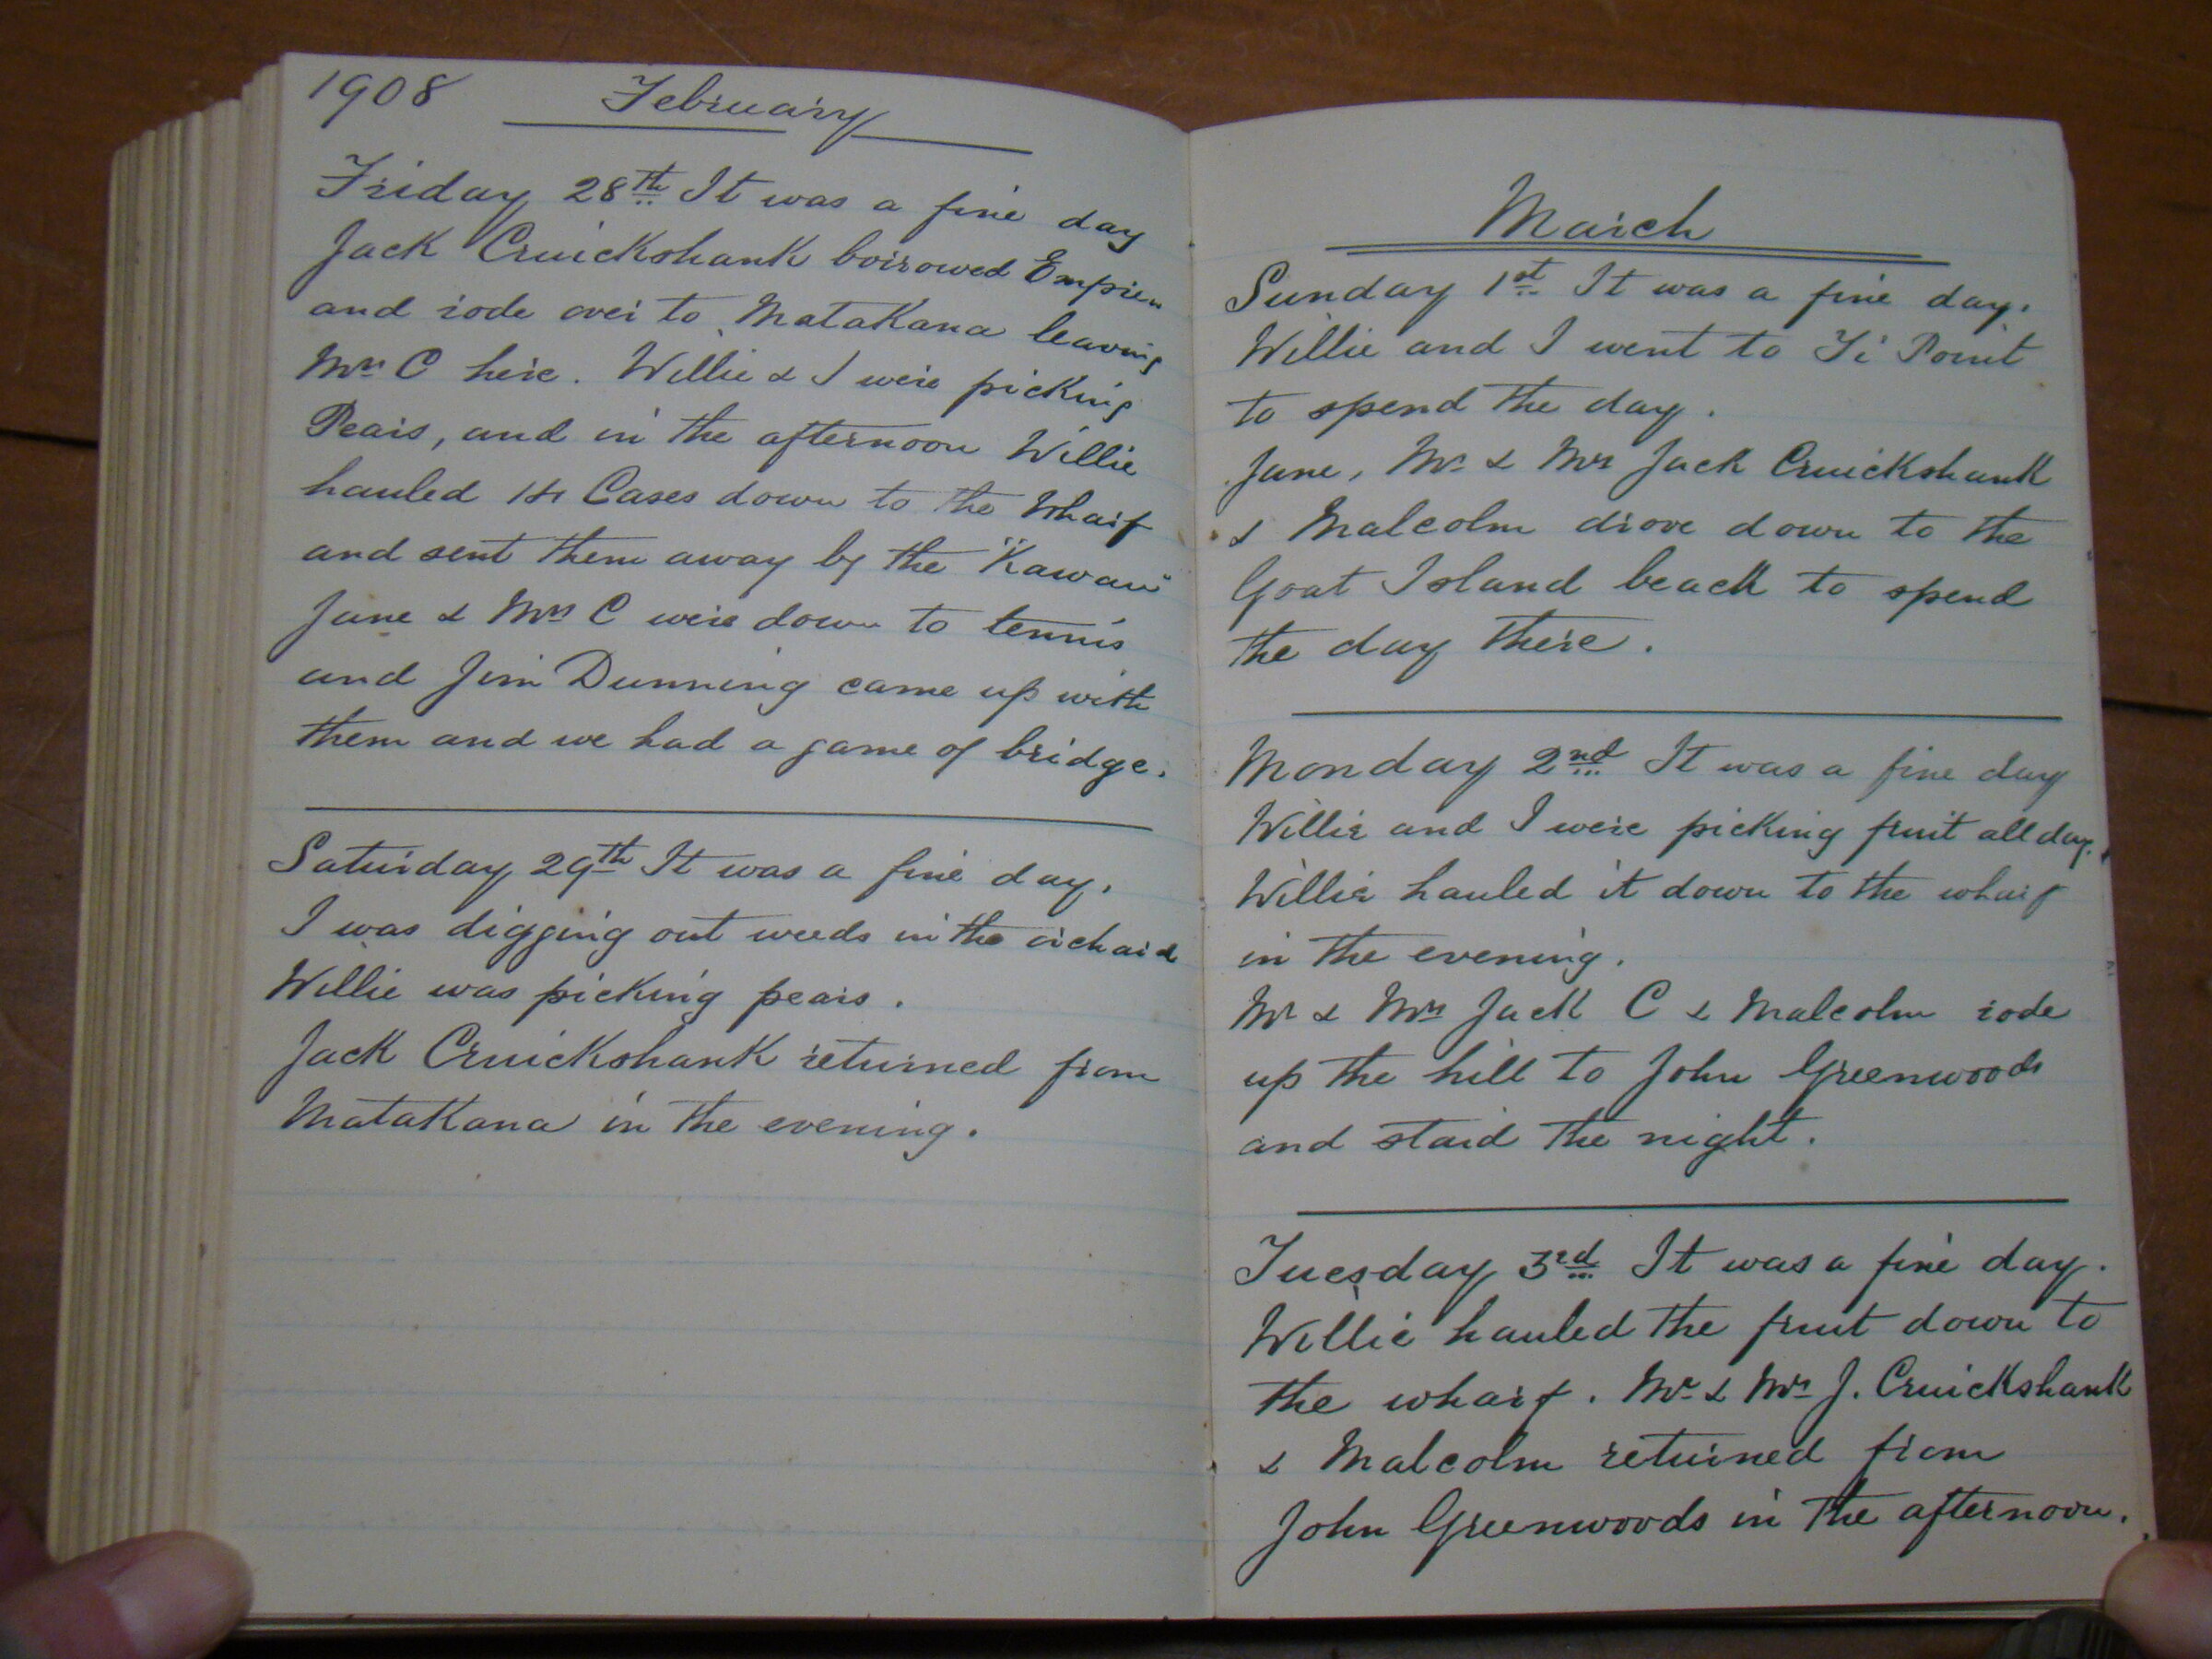 1908 February
Friday 28th It was a fine day
Jack Cruickshank borrowed Empress
and rode over to Matakana leaving
Mrs C here. Willie & I were picking
Pears, and in the afternoon Willie
hauled 14 Cases down to the Wharf
and sent them away by the "Kawau"
Jane & Mrs C were down to tennis
and Jim Dunning came up with
them and we had a game of bridge.
Saturday 29th It was a fine day.
I was digging out weeds in the orchard
Willie was picking pears.
Jack Cruickshank returned from
Matakana in the evening.
March
Sunday 1st It was a fine day.
Willie and I went to Ti Point
to spend the day.
Jane, Mr & Mrs Jack Cruickshank
& Malcolm drove down to the
Goat Island beach to spend
the day there.
Monday 2nd It was a fine day
Willie and I were picking fruit all day.
Willie hauled it down to the wharf
in the evening.
Mr & Mrs Jack C & Malcolm rode
up the hill to John Greenwoods
and staid the night.
Tuesday 3rd It was a fine day.
Willie hauled the fruit down to
the wharf. Mr & Mrs J. Cruickshank
& Malcolm returned from
John Greenwoods in the afternoon.